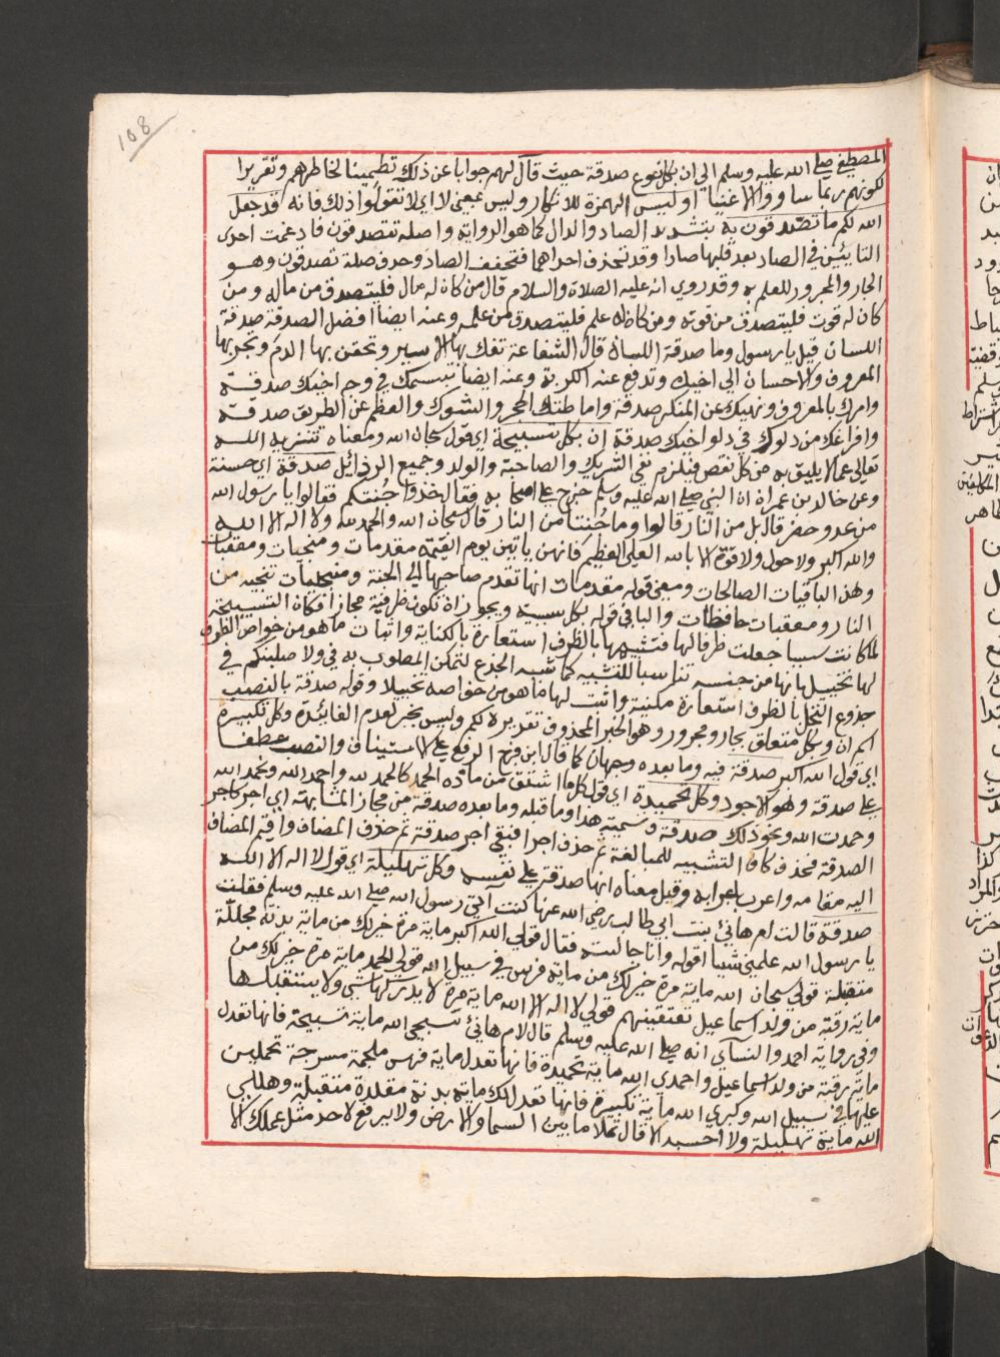 108
المصطفى صلى الله عليه وسلم الى ان كل نوع صدقة حيث قال لهم جوابا عن ذلك تطمينا لخاطرهم وتقريرا
لكونهم ربما ساووا الاغنيا او ليس الهمزة للانكار وليس بمعنى لا اى لا تقولوا ذلك فانه قد جعل
الله لكم ما تصدقون به بتشديد الصاد والدال كما هو الرواية واصله تتصدقون فادغمت احدى
التائين في الصاد بعد قلبها صادا وقد تحذف احداهما فتخفف الصاد وحذف صلة تصدقون وهو
الجار والمجرور للعلم به وقد روي انه عليه الصلاة والسلام قال من كان له مال فليتصدق من ماله ومن
كان له قوت فليتصدق من قوته ومن كان له علم فليتصدق من علمه وعنه ايضا افضل الصدقة صدقة
اللسان قيل يا رسول وما صدقة اللسان قال الشفاعة تفك بها الاسير وتحقن بها الدم وتجر بها
المعروف والاحسان الى اخيك وتدفع عنه الكربة وعنه ايضا تبسمك في وجه اخيك صدقة
وامرك بالمعروف ونهيك عن المنكر صدقة واماطتك الحجر والشوك والعظم عن الطريق صدقة
وافراغك من دلوك في دلو اخيك صدقة ان بكل تسبيحة اى قول سبحان الله ومعناه تنزيه الله
تعالى عما لا يليق به من كل نقص فيلزم نفي الشريك والصاحبة والولد وجميع الرذائل صدقة اي حسنة
وعن خالد بن عمران ان النبي صلى الله عليه وسلم خرج على اصحابه فقال خذوا جنتكم فقالوا يا رسول الله
من عدو حضر قال بل من النار قالوا وما جنتنا من النار قال سبحان الله والحمد لله ولا اله الا الله
والله اكبر ولا حول ولا قوة الا بالله العلى العظيم فانهن ياتين يوم القيمة مقدمات ومنجيات ومعقبات
وهن الباقيات الصالحات ومعنى قوله مقدمات انها تقدم صاحبها الى الجنة ومنجيات تنجيه من
النار ومعقبات حافظات والبا في قوله بكل سببية ويجوز ان تكون ظرفية مجازا فكان التسبيحة
لما كانت سببا جعلت ظرفا لها فتشبيهها بالظرف استعارة بالكناية واثبات ما هو من خواص الظرف
لها تخييل بانها من جنسه تناسبا للتشبيه كما شبه الجذع لتمكن المصلوب به في ولاصلبنكم في
جذوع النخل بالظرف استعارة مكنية واثبت لها ما هو من خواصه تخييلا وقوله صدقة بالنصب
اسم ان وبكل متعلق بجار ومجرور وهو الخبر المحذوف تقديره لكم وليس بخبر لعدم الفائدة وكل تكبيرة
اى قول الله اكبر صدقة فيه وما بعده وجهان كما قال ابن فرح الرفع على الاستيناف والنصب عطفا
على صدقة وهو الاجود وكل تحميدة اى قول كل ما اشتق من مادة الحمد كالحمد لله واحمد الله ونحمد الله
وحمدت الله ونحو ذلك صدقة وتسمية هذا وما قبله وما بعده صدقة من مجاز المشابهة اى اجر كاجر
الصدقة فحذف كاف التشبيه للمبالغة ثم حذف اجرا فبقي اجر صدقة ثم حذف المضاف واقيم المضاف
اليه مقامه واعرب باعرابه وقيل معناه انها صدقة على نفسه وكل تهليلة اى قول لا اله الا الله
صدقة قالت ام هانئ بنت ابي طالب رضى الله عنها كنت آتي رسول الله صلى الله عليه وسلم فقلت
يا رسول الله علمني شيا اقوله وانا جالسة فقال قولي الله اكبر ماية مرة خير لك من ماية بدنة مجللة
متقبلة قولي سبحان الله ماية مرة خير لك من ماية فرس في سبيل الله قولي الحمد ماية مرة خير لك من
ماية رقبة من ولد اسماعيل تعتقينهم قولي لا اله الا الله ماية مرة لا يدركها شي ولا يستقبلها
وفي رواية احمد والنسآي انه صلى الله عليه وسلم قال لام هانئ سبحي الله ماية تسبيحة فانها تعدل
ماية رقبة من ولد اسماعيل واحمدي الله ماية تحميدة فانها تعدل ماية فرس ملجمة مسرجة تحملين
عليها في سبيل الله وكبري الله ماية تكبيرة فانها تعدل لك ماية بدنة مقلدة متقبلة وهللي
الله ماية تهليلة ولا احسبه الا قال تملا ما بين السما والارض ولا يرفع لاحد مثل عملك الا